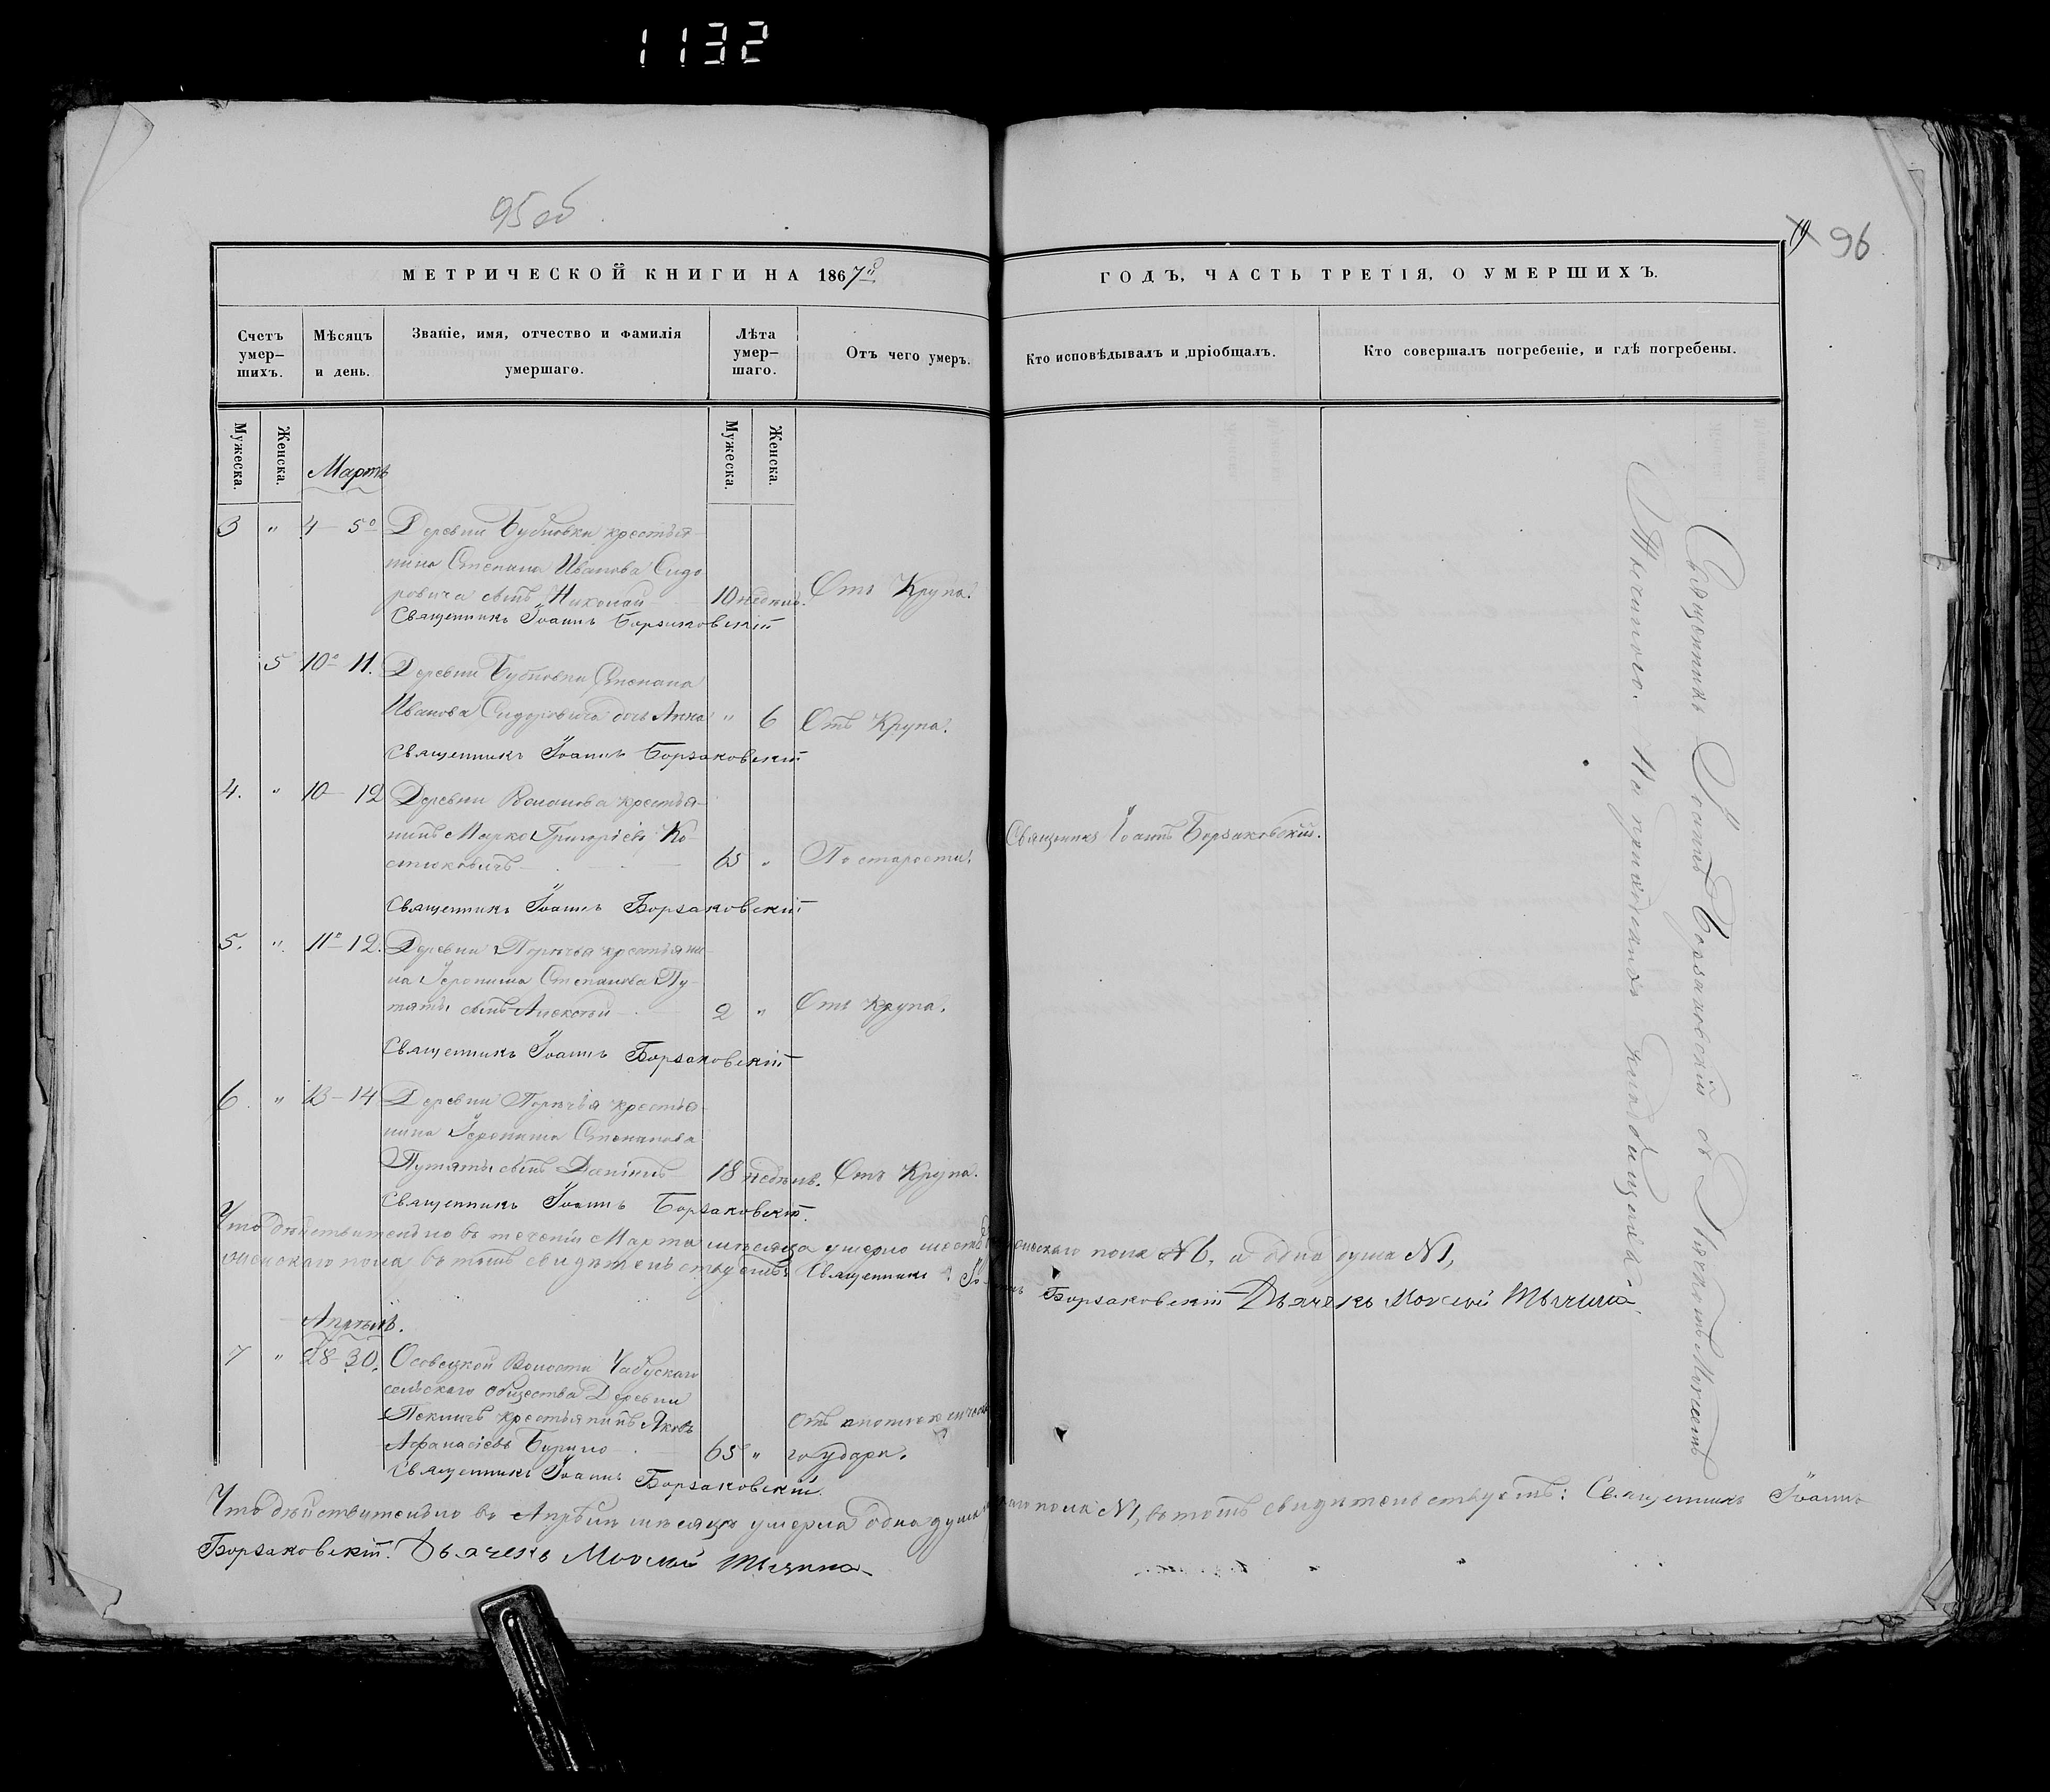 1132
95 об
96
МЕТРИЧЕСКОЙ КНИГИ НА 1867й
ГОДЪ, ЧАСТЬ ТРЕТІЯ, О УМЕРШИХЪ.
Счетъ умер–шихъ.
Мѣсяцъ и день.
Званіе, имя, отчество и фамилія умершаго.
Лѣта умер–шаго.
Отъ чего умеръ.
Кто исповѣдывалъ и пріобщалъ.
Кто совершалъ погребеніе, и гдѣ погребены.
Мужеска.
Женска.
Мужеска.
Женска.
Мартъ
3 " 4–5º Деревни Бубновки крестья–
нина Степана Иванова Сидо
ровича сынъ Николай 10 недѣль. Отъ Крупа.
Священникъ Іоаннъ Борзаковскій
5 10º–11. Деревни Бубновки Степана
Иванова Сидоровича дочь Анна " 6 Отъ Крупа.
Священникъ Іоаннъ Борзаковскій
4. " 10–12 Деревни крестья–
нинъ Марко Григоріевъ Ко–
стюковичъ 65 " По старости. Священникъ Іоаннъ Борзаковскій.
Священникъ Іоаннъ Борзаковскій
5. " 11º–12. Деревни Порѣчья крестьяни–
на Іеронима Степанова Пу–
тяты сынъ Алексѣй 2 " Отъ Крупа.
Священникъ Іоаннъ Борзаковскій
6 " 13–14 Деревни Порѣчья крестья–
нина Іеронима Степанова
Путяты сынъ Даніилъ 18 недѣль. Отъ Крупа.
Священникъ Іоаннъ Борзаковскій.
Что дѣйствительно въ теченіи Марта мѣсяца умерло шесть пола №6, и одна душа №1,
женскаго пола въ томъ свидѣтельствуемъ: Священникъ Іоаннъ Борзаковскій Дьячекъ Моисей Тычина.
Апрѣль.
7 " 28–30. Осовецкой Волости
сельскаго общества Деревни
крестьянинъ Яковъ
Афанасіевъ 65 " Отъ апоплексичес
го удара.
Священникъ Іоаннъ Борзаковскій.
Что дѣйствительно въ Апрѣлѣ мѣсяцѣ умерла одна душа пола №1, въ томъ свидѣтельствуемъ: Священникъ Іоаннъ
Борзаковскій. Дьячекъ Моисей Тычина
Священникъ Іоаннъ Борзаковскій съ Дьячкомъ Моисеемъ
Тычиною. На приходскомъ кладбищѣ.